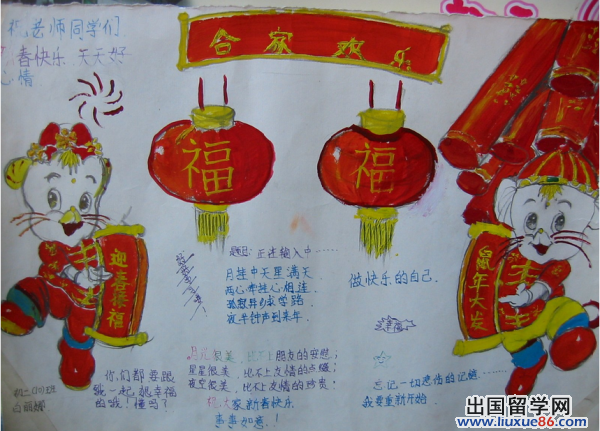 祝老师同学们
春快乐 天天好
心情
合家欢乐
福
福
迎春接福
鼠年大发
题记:正在输入中……
月挂中天星满天
两心牵挂心相连
夜半钟声到来年
做快乐的自己.
月光很美,比不上朋友的安慰;
星星很美,比不上友情的点缀;
夜空很美,比不上友情的珍贵;
祝大家新春快乐
万事如意!
你们都要跟
我一起,想幸福
的哦!懂吗?
忘记一切悲伤的记忆……
我要重新开始
白丽娜
出国留学网
www.liuxue86.com